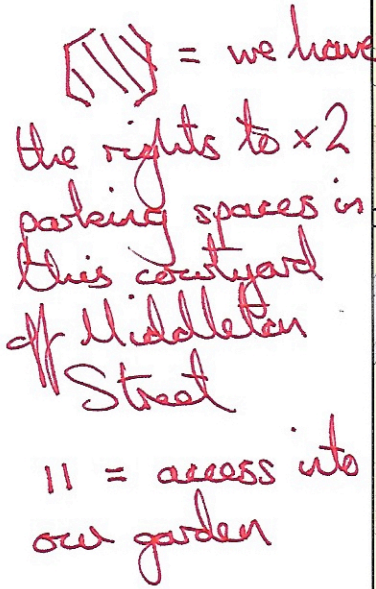 = we have
the rights to x2
parking spaces in
this courtyard
off Middleton
Street
11 = access into
our garden